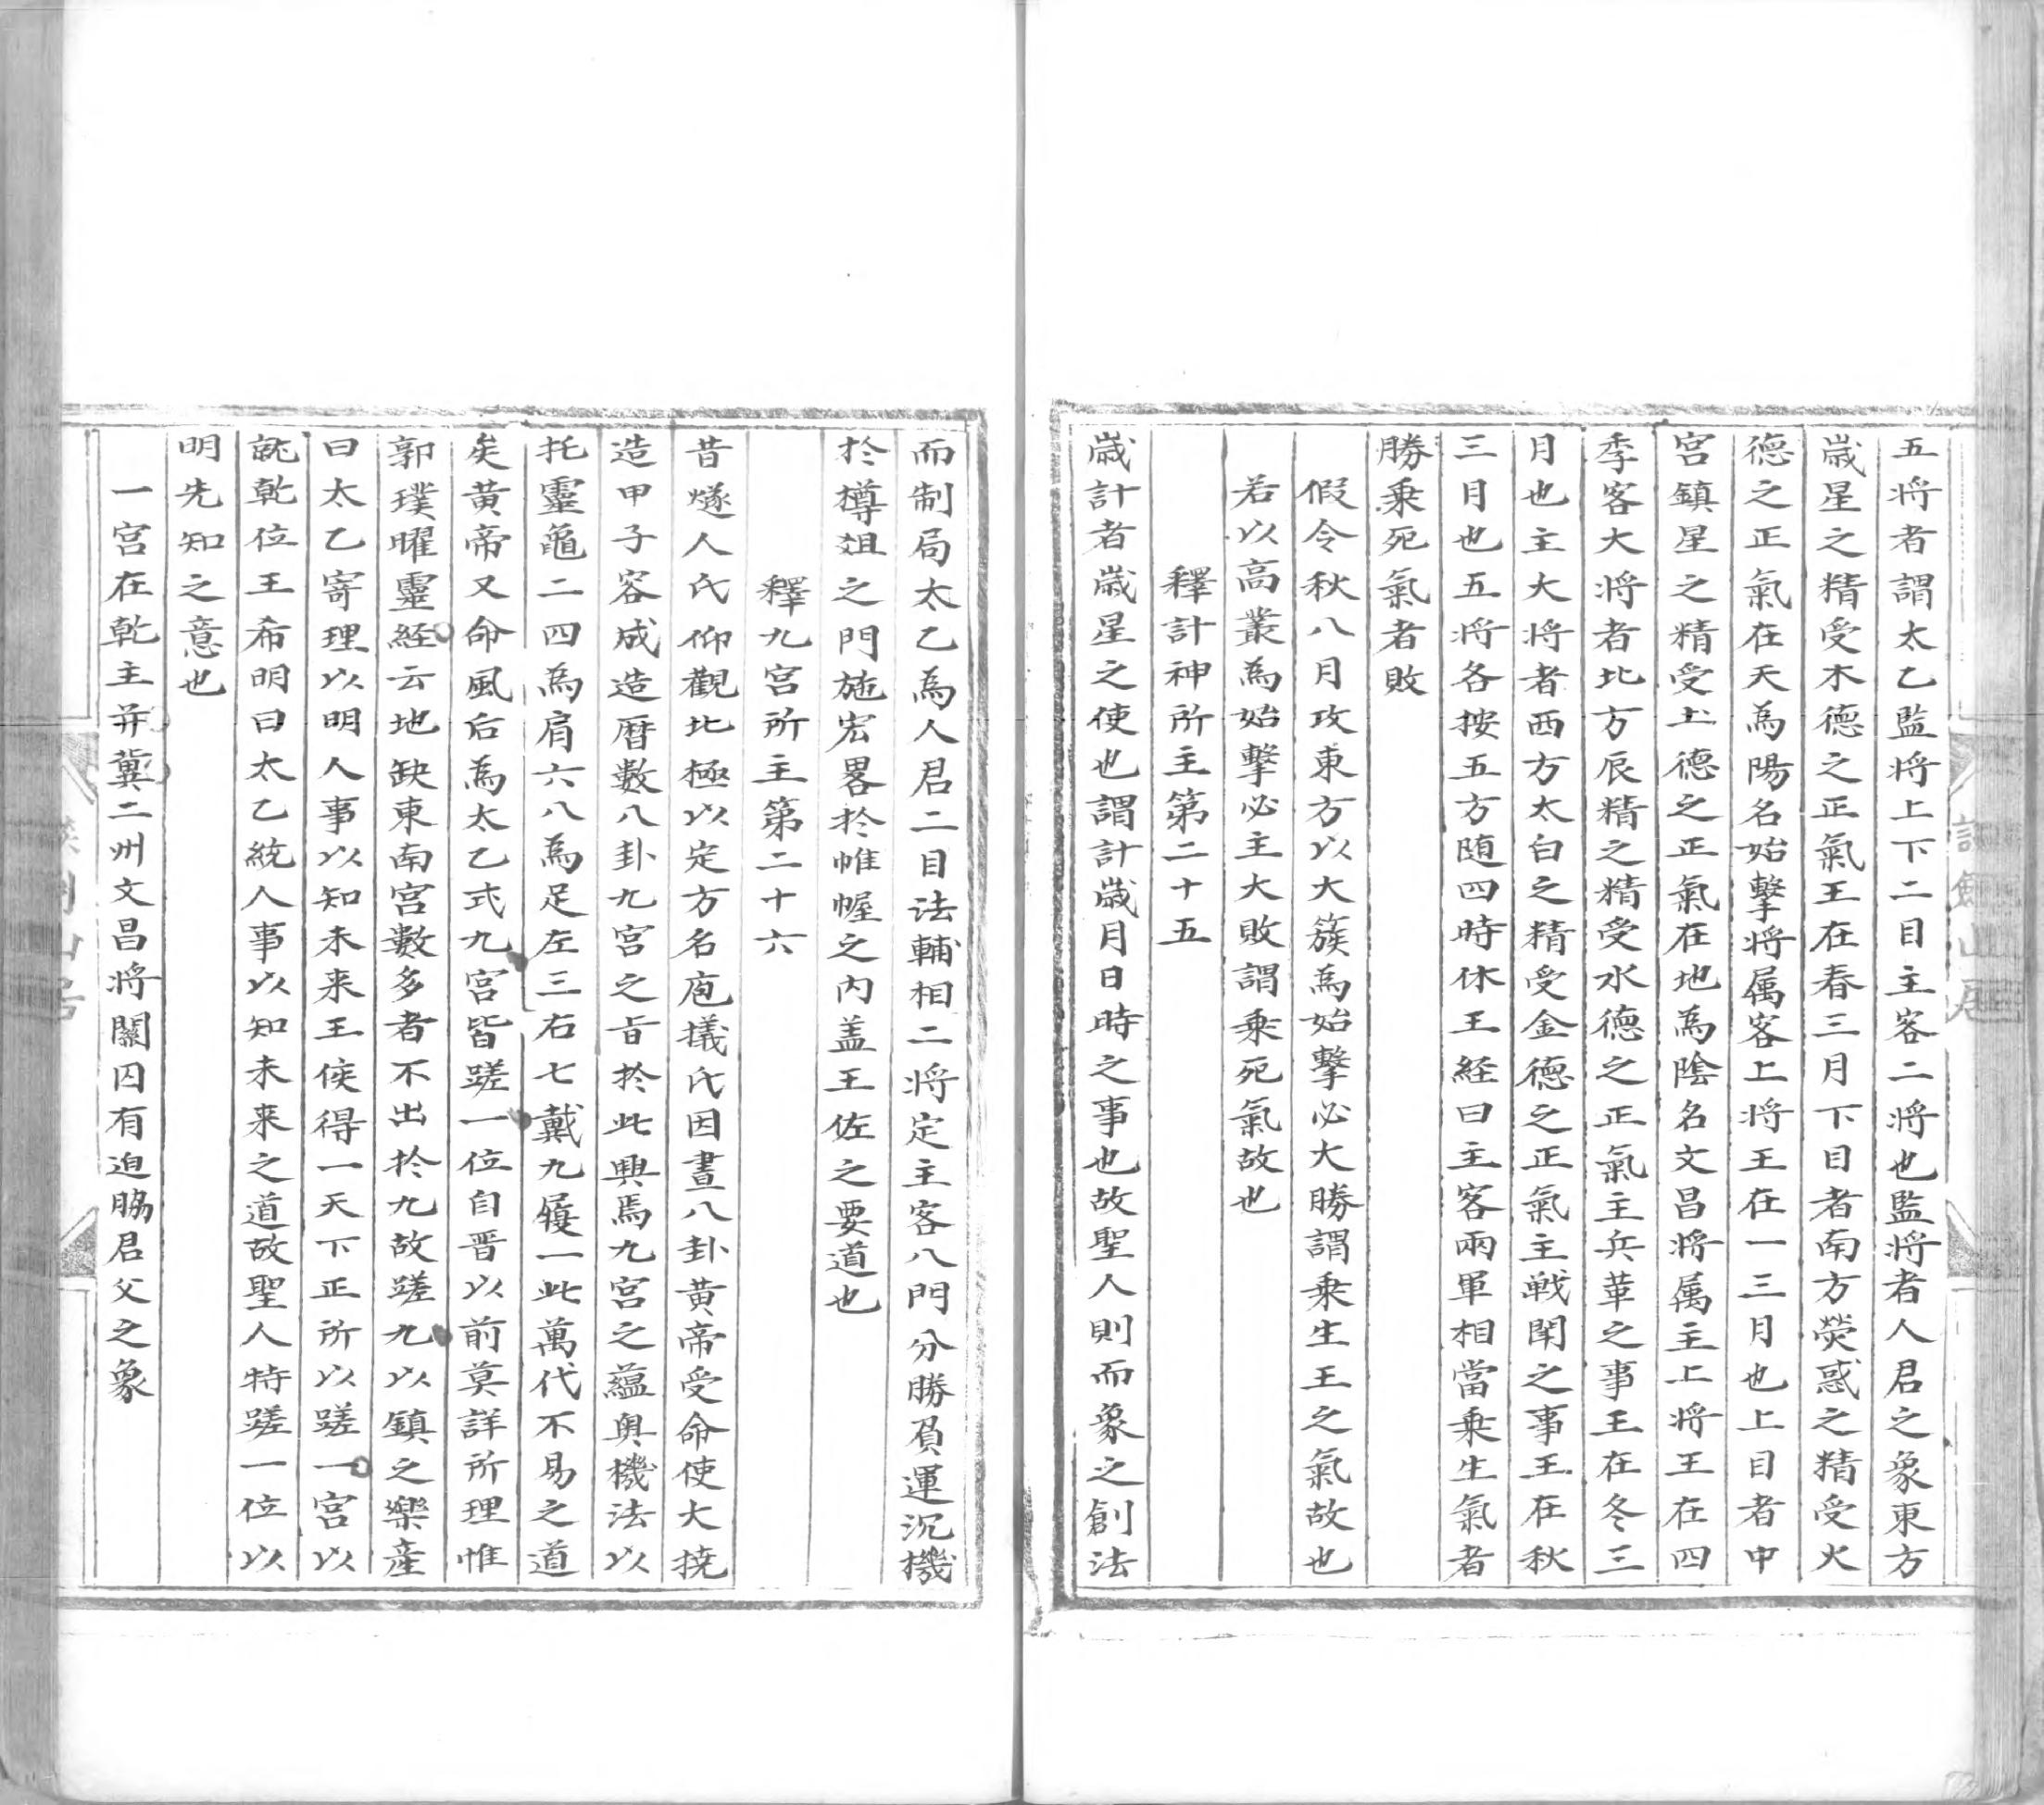 五将者謂太乙監将上下二目主客二将也監将者人君之象東方
歳星之精受木德之正氣王在春三月下目者南方熒惑之精受火
德之正氣在天為陽名始擊将属客上将王在一三月也上目者中
宫鎮星之精受土德之正氣在地為陰名文昌将属主上将王在四
季客大将者北方辰精之精受水德之正氣主兵革之事王在冬三
月也主大将者西方太白之精受金德之正氣主戦閗之事王在秋
三月也五将各按五方随四時休王経曰主客兩軍相當乗生氣者
勝乗死氣者敗
假令秋八月攻東方以大簇為始擊必大勝謂乗生王之氣故也
若以高叢為始擊必主大敗謂乗死氣故也
釋計神所主第二十五
歳計者歳星之使也謂計歳月日時之事也故聖人則而象之創法
而制局太乙為人君二目法輔相二将定主客八門分勝負運沉機
於樽俎之門施宏畧於帷幄之内盖王佐之要道也
釋九宫所主第二十六
昔燧人氏仰觀北極以定方名庖犠氏因畫八卦黄帝受命使大撓
造甲子容成造暦數八卦九宫之旨於此興焉九宫之蘊奥機法以
托靈龜二四為肩六八為足左三右七戴九履一此萬代不易之道
矣黄帝又命風后為太乙式九宫皆蹉一位自晋以前莫詳所理惟
郭璞曜靈経云地缺東南宫數多者不出於九故蹉九以鎮之樂産
曰太乙寄理以明人事以知未来王侯得一天下正所以蹉一宫以
就乾位王希明曰太乙統人事以知未来之道故聖人特蹉一位以
明先知之意也
一宫在乾主并冀二州文昌将關囚有迫脇君父之象